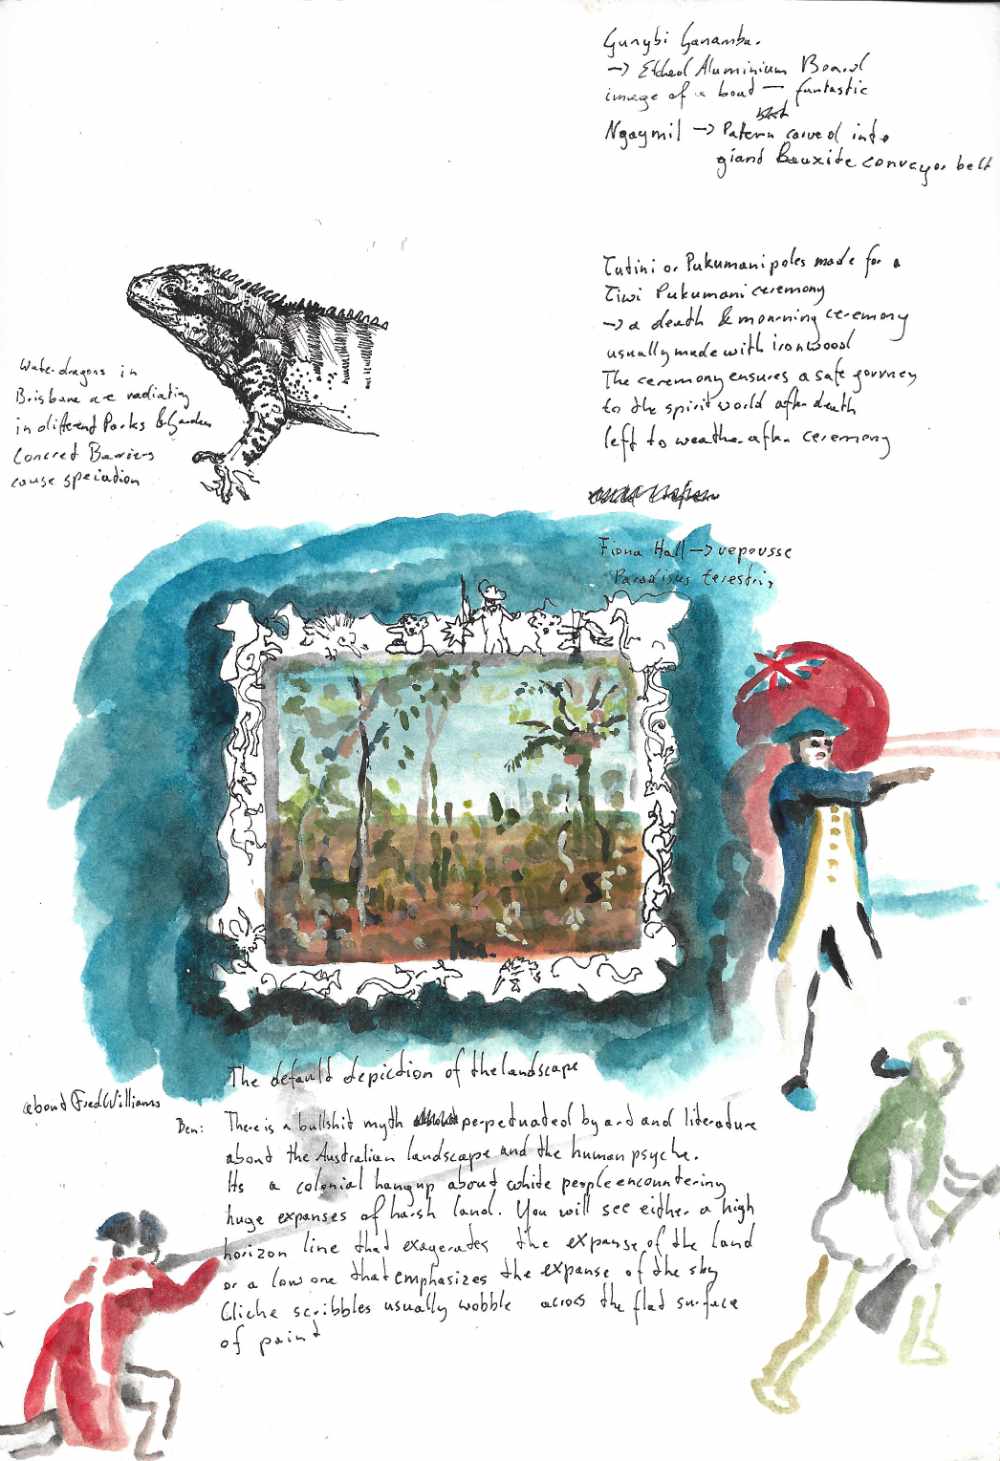 Gunybi Ganamba.
→ Etched Aluminium Board
image of a boat — fantastic
Ngaymil → Patern carved into
giand Bauxite conveyor belt
Tutini or Pukumani poles made for a
Tiwi Pukumani ceremony
→ a death & mourning ceremony
usually made with ironwood
The ceremony ensures a safe journey
to the spirit world after death
left to weather after ceremony
Water dragons in
Brisbane are radiating
in different Parks & Garden
Concret Barriers
cause speciation
Fiona Hall → repousse
Paradisus terestris
The default depiction of the landscape
about Fred Williams
Ben: There is a bullshit myth perpetuated by art and literature
about the Australian landscape and the human psyche.
Its a colonial hangup about white people encountering
huge expanses of harsh land. You will see either a high
horizon line that exagerates the expanse of the land
or a low one that emphasizes the expanse of the sky
Cliche scribbles usually wobble across the flat surface
of paint